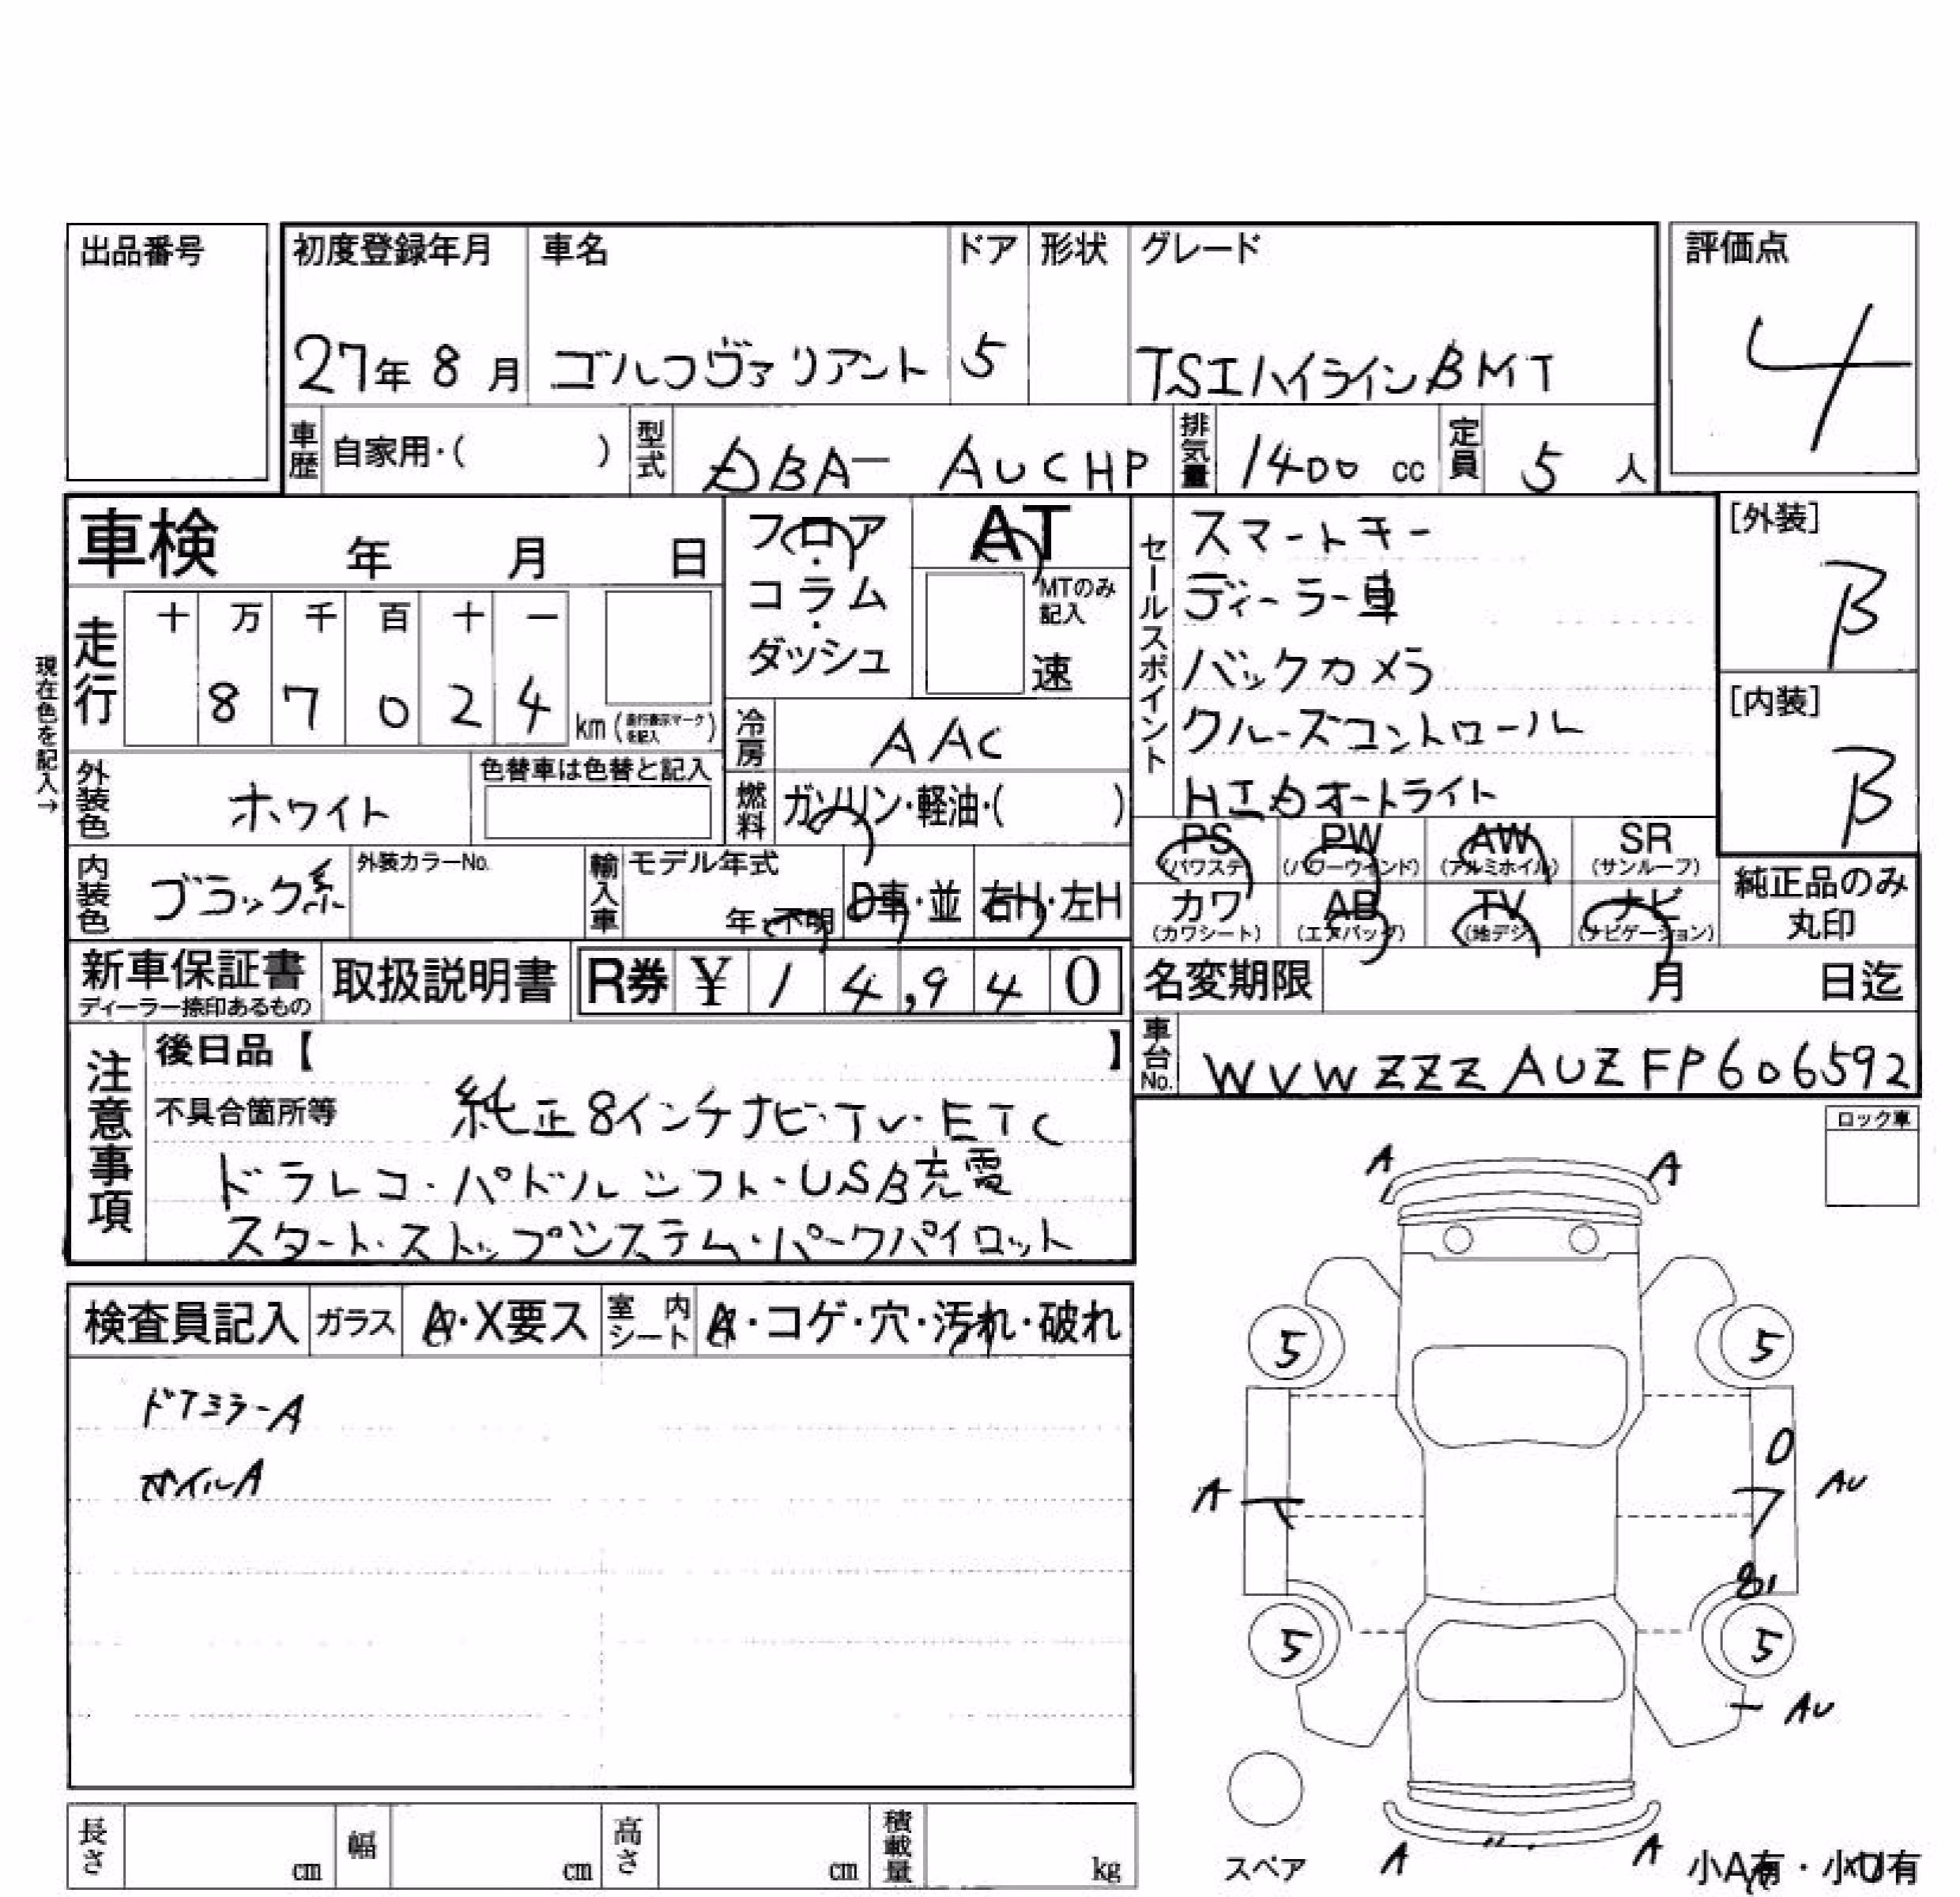 出品番号
初度登録年月 車名 ドア 形状 グレード 評価点
27年 8月 ゴルフヴァリアント 5 TSIハイラインBMT 4
車歴 自家用・( ) 型式 DBA- AUCHP 排気量 1400 cc 定員 5 人
車検 年 月 日
フロア・コラム・ダッシュ
AT
MTのみ記入
速
セールスポイント
スマートキー
ディーラー車
バックカメラ
クルーズコントロール
HIDオートライト
[外装]
B
[内装]
B
現在色を記入→
走行 十 万 千 百 十 一
8 7 0 2 4 km (走行表示マークを記入)
冷房 AAC
外装色 ホワイト 色替車は色替と記入
燃料 ガソリン・軽油・( )
内装色 ブラック系 外装カラーNo. 輸入車 モデル年式 年・不明 D車・並 右H・左H
PS (パワステ) PW (パワーウインド) AW (アルミホイル) SR (サンルーフ)
カワ (カワシート) AB (エアバッグ) TV (地デジ) ナビ (ナビゲーション)
純正品のみ丸印
新車保証書 ディーラー捺印あるもの 取扱説明書 R券 ¥ 1 4,9 4 0
名変期限 月 日迄
車台No. WVWZZZAUZFP606592
注意事項
後日品【 】
不具合箇所等 純正8インチナビ・TV・ETC
ドラレコ・パドルシフト・USB充電
スタート・ストップシステム・パークパイロット
ロック車
検査員記入 ガラス A・X要ス 室内シート A・コゲ・穴・汚れ・破れ
ドアミラーA
ホイルA
A A
5 5
A AU
5 5
AU
スペア
A A
小A有・小U有
長さ cm 幅 cm 高さ cm 積載量 kg